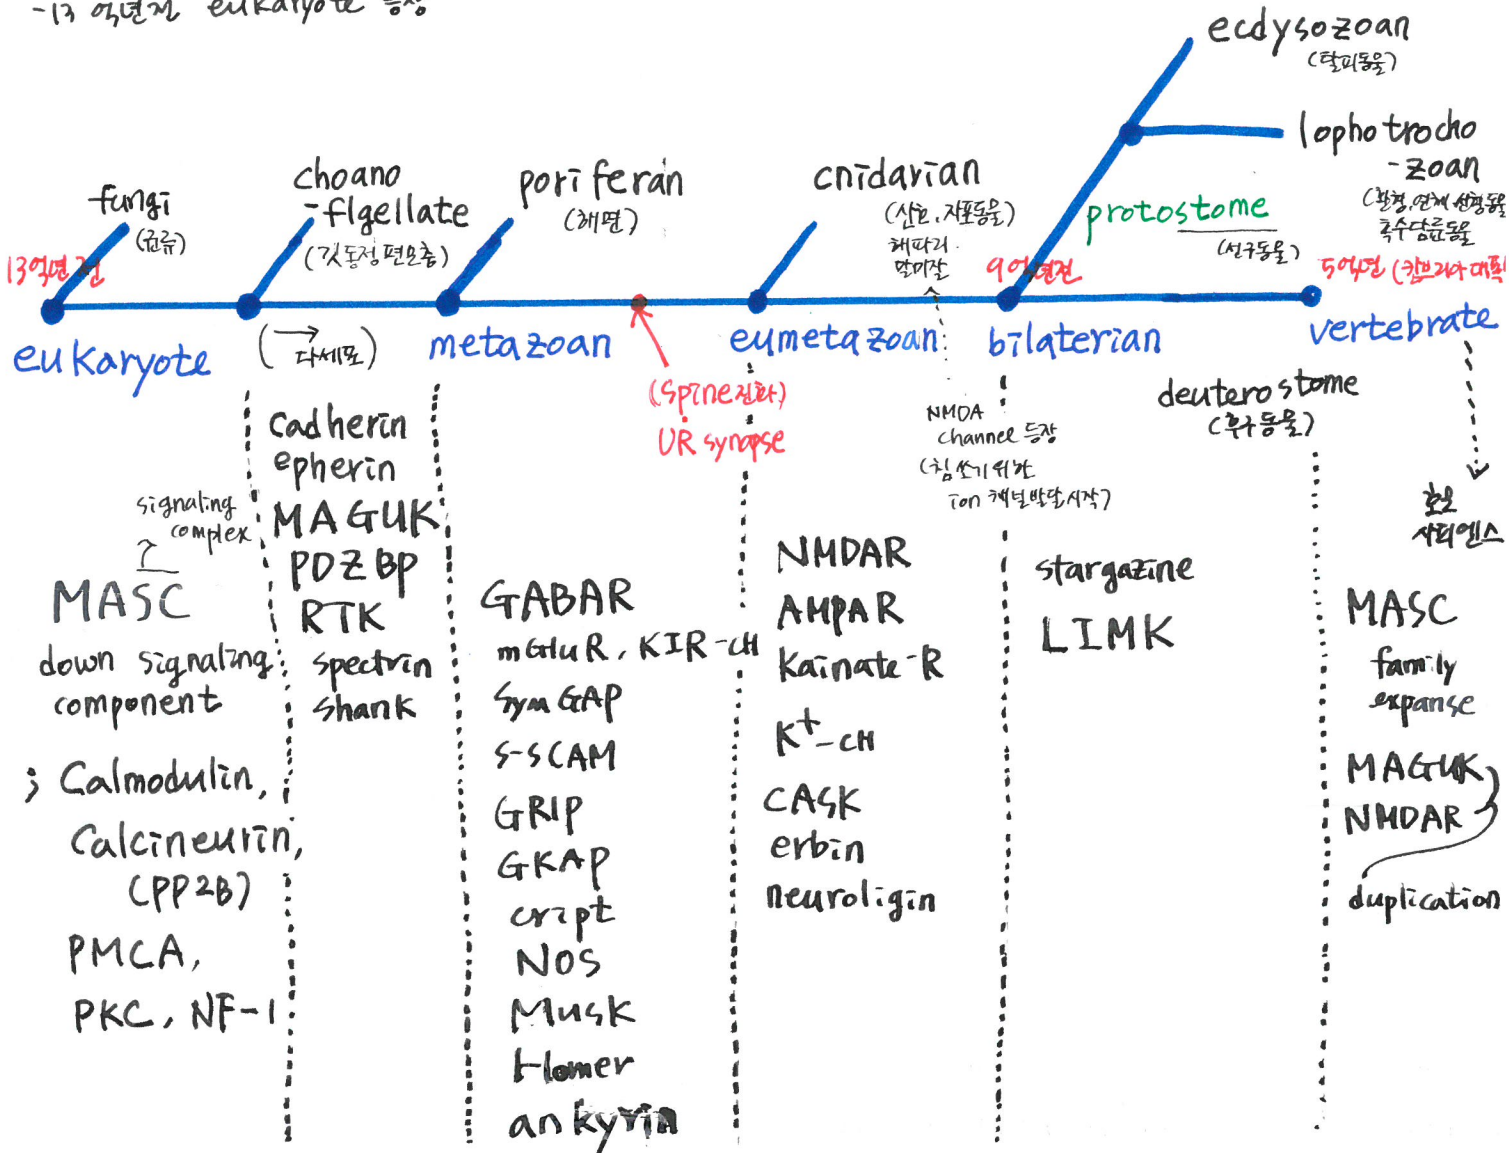 -13 억년전 eukaryote 등장
ecdysozoan
(탈피동물)
lophotrocho
-zoan
(환형, 연체, 선형동물
촉수담륜동물
fungi
(균류)
choano
-flgellate
(깃동정편모충)
poriferan
(해면)
cnidarian
(산호, 자포동물)
해파리
말미잘
protostome
(선구동물)
13억년전
9억년전
5억년 (캄브리아대폭
eukaryote
(→
다세포)
metazoan
eumetazoan
bilaterian
vertebrate
(spine진화)
UR synapse
NMDA
channel 등장
(침쏘기위한
ion 채널발달시작)
deuterostome
(후구동물)
호모
사피엔스
signaling
complex
MASC
down signaling
component
; Calmodulin,
Calcineurin,
(PP2B)
PMCA,
PKC, NF-1
cadherin
epherin
MAGUK
PDZBP
RTK
spectrin
shank
GABAR
mGluR, KIR-CH
SymGAP
S-SCAM
GRIP
GKAP
cript
NOS
Musk
Homer
ankyrin
NMDAR
AMPAR
Kainate-R
K+-CH
CASK
erbin
neuroligin
stargazine
LIMK
MASC
family
expanse
MAGUK
NMDAR
duplication